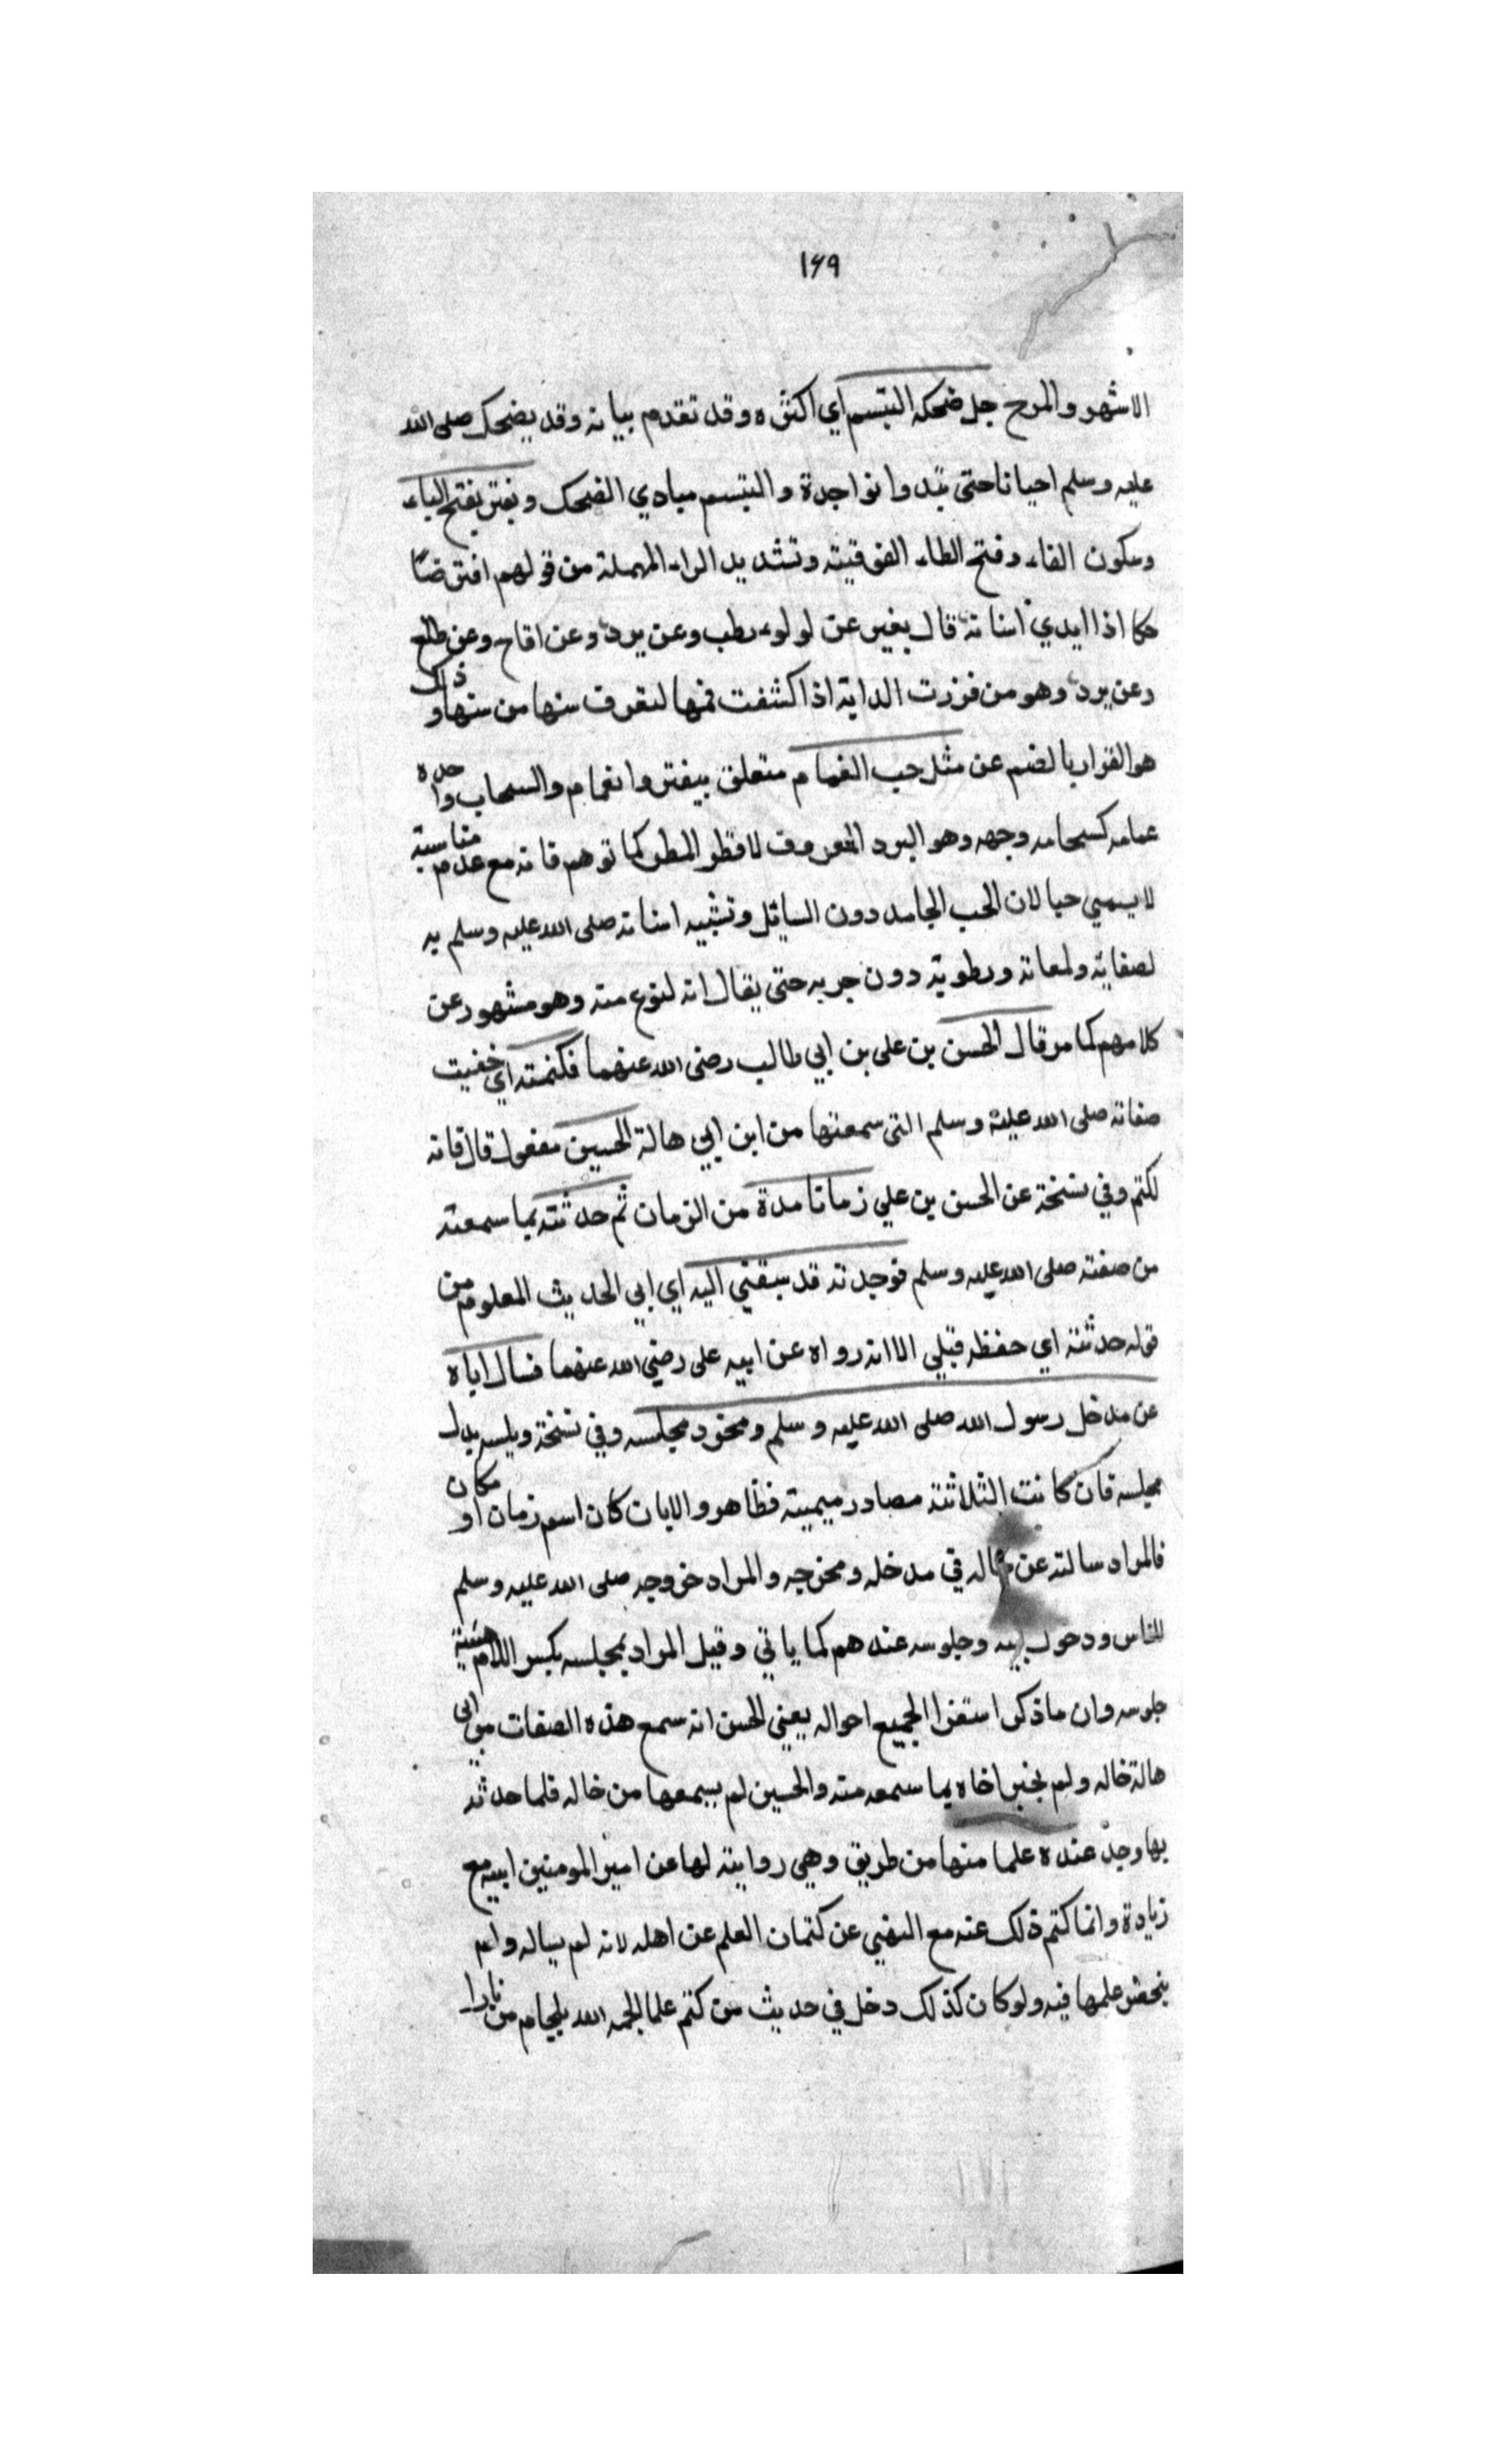 ١٦٩
الاشهر والمرح جل ضحكه التبسم اي اكثره وقد تقدم بيانه وقد يضحك صلى الله
عليه وسلم احيانا حتى تبدوا نواجدة والتبسم مبادي الضحك ويفتر بفتح الياء
وسكون الفاء وفتح الطاء الفوقيته وتشديد الراء المهملة من قولهم افتر ضا
حكا اذا ابدي اسنانه قال يفير عن لولوء رطب وعن برد وعن اقاح وعن طلع
وعن برد وهو من فررت الدابة اذا كشفت فمها لتعرف سنها من سنها وذلك
هو الفوار بالضم عن مثل حب الغمام متعلق بيفتر والغمام والسحاب واحده
عمامه كسحامه وجهه وهو البرد المعروف لا قطر المطر كما توهم فانه مع عدم مناسبته
لا يسمي حبا لان الحب الجامد دون السايل وتشبيه اسنانه صلى الله عليه وسلم به
لصفايه ولمعانه ورطوبته دون جريه حتى يقال انه لنوع منه وهو مشهور عن
كلامهم كما مر قال الحسن بن على بن ابي طالب رضى الله عنهما فكتمته اي خفيت
صفاته صلى الله عليه وسلم التى سمعتها من ابن ابي هالة الحسين مفعول قال فانه
لكتم وفي نسخة عن الحسن بن علي زمانا مدة من الزمان ثم حدثته بما سمعته
من صفته صلى الله عليه وسلم فوجدته قد سبقني اليه اي ابي الحديث المعلوم من
قوله حدثته اي حفظه قبلي الا انه رواه عن ابيه على رضي الله عنهما فسال اباه
عن مدخل رسول الله صلى الله عليه وسلم ومخرد مجلسه وفي نسخة ويلسه بدل
مجلسه فان كانت الثلاثة مصادر ميميته فظاهر والايان كان اسم زمان او مكان
فالمراد سالته عن حاله في مدخله ومخرجه والمراد خروجه صلى الله عليه وسلم
للناس ودخول بيته وجلوسه عندهم كما ياتي وقيل المراد بمجلسه بكسر اللام هيئة
جلوسه وان ماذكر استقرا الجميع احواله يعني الحسن انه سمع هذه الصفات من ابي
هالة خاله ولم يخبر اخاه بما سمعه منه والحسين لم يسمعها من خاله فلما حدثه
بها وجد عنده علما منها من طريق وهي روايته لها عن امير المومنين ابيه مع
زيادة وانما كتم ذلك عنه مع النهي عن كتمان العلم عن اهله لانه لم يساله ولم
ينحصر علمها فيه ولو كان كذلك دخل في حديث من كتم علما الجمه الله بلجام من نارا